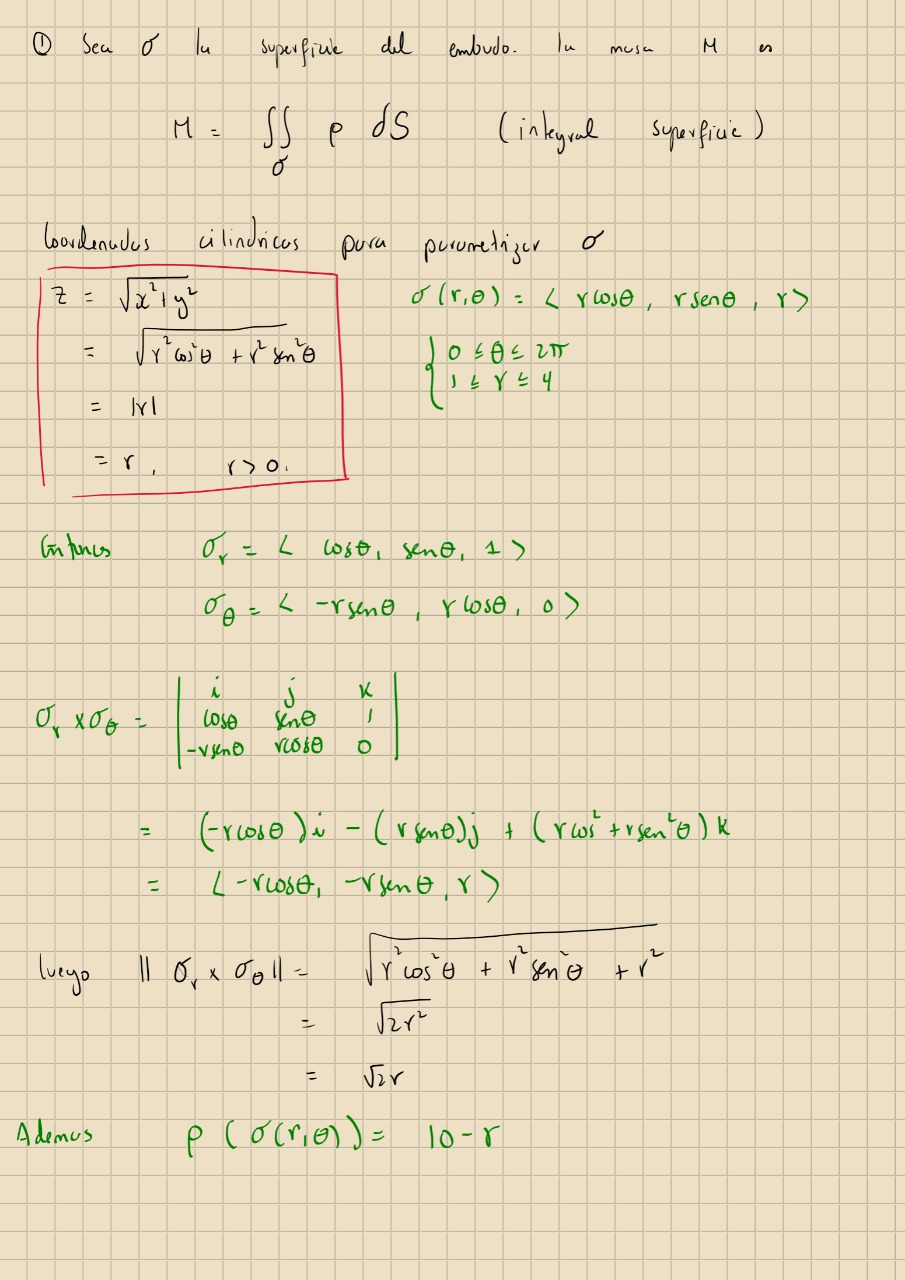 ① Sea σ la superficie del embudo. la masa M es
M = ∬_σ ρ dS (integral superficie)
Coordenadas cilindricas para parametrizar σ
z = √(x² + y²)
= √(r² cos² θ + r² sen² θ)
= |r|
= r , r > 0.
σ(r,θ) = < r cosθ , r senθ , r >
{ 0 ≤ θ ≤ 2π
1 ≤ r ≤ 4
Entonces σ_r = < cosθ, senθ, 1 >
σ_θ = < -r senθ , r cosθ, 0 >
σ_r × σ_θ = | i j k
cosθ senθ 1
-r senθ r cosθ 0 |
= (-r cosθ) i - (r senθ) j + (r cos² + r sen² θ) k
= < -r cosθ, -r senθ, r >
luego || σ_r × σ_θ || = √(r² cos² θ + r² sen² θ + r²)
= √(2r²)
= √2 r
Ademas ρ ( σ(r,θ) ) = 10 - r